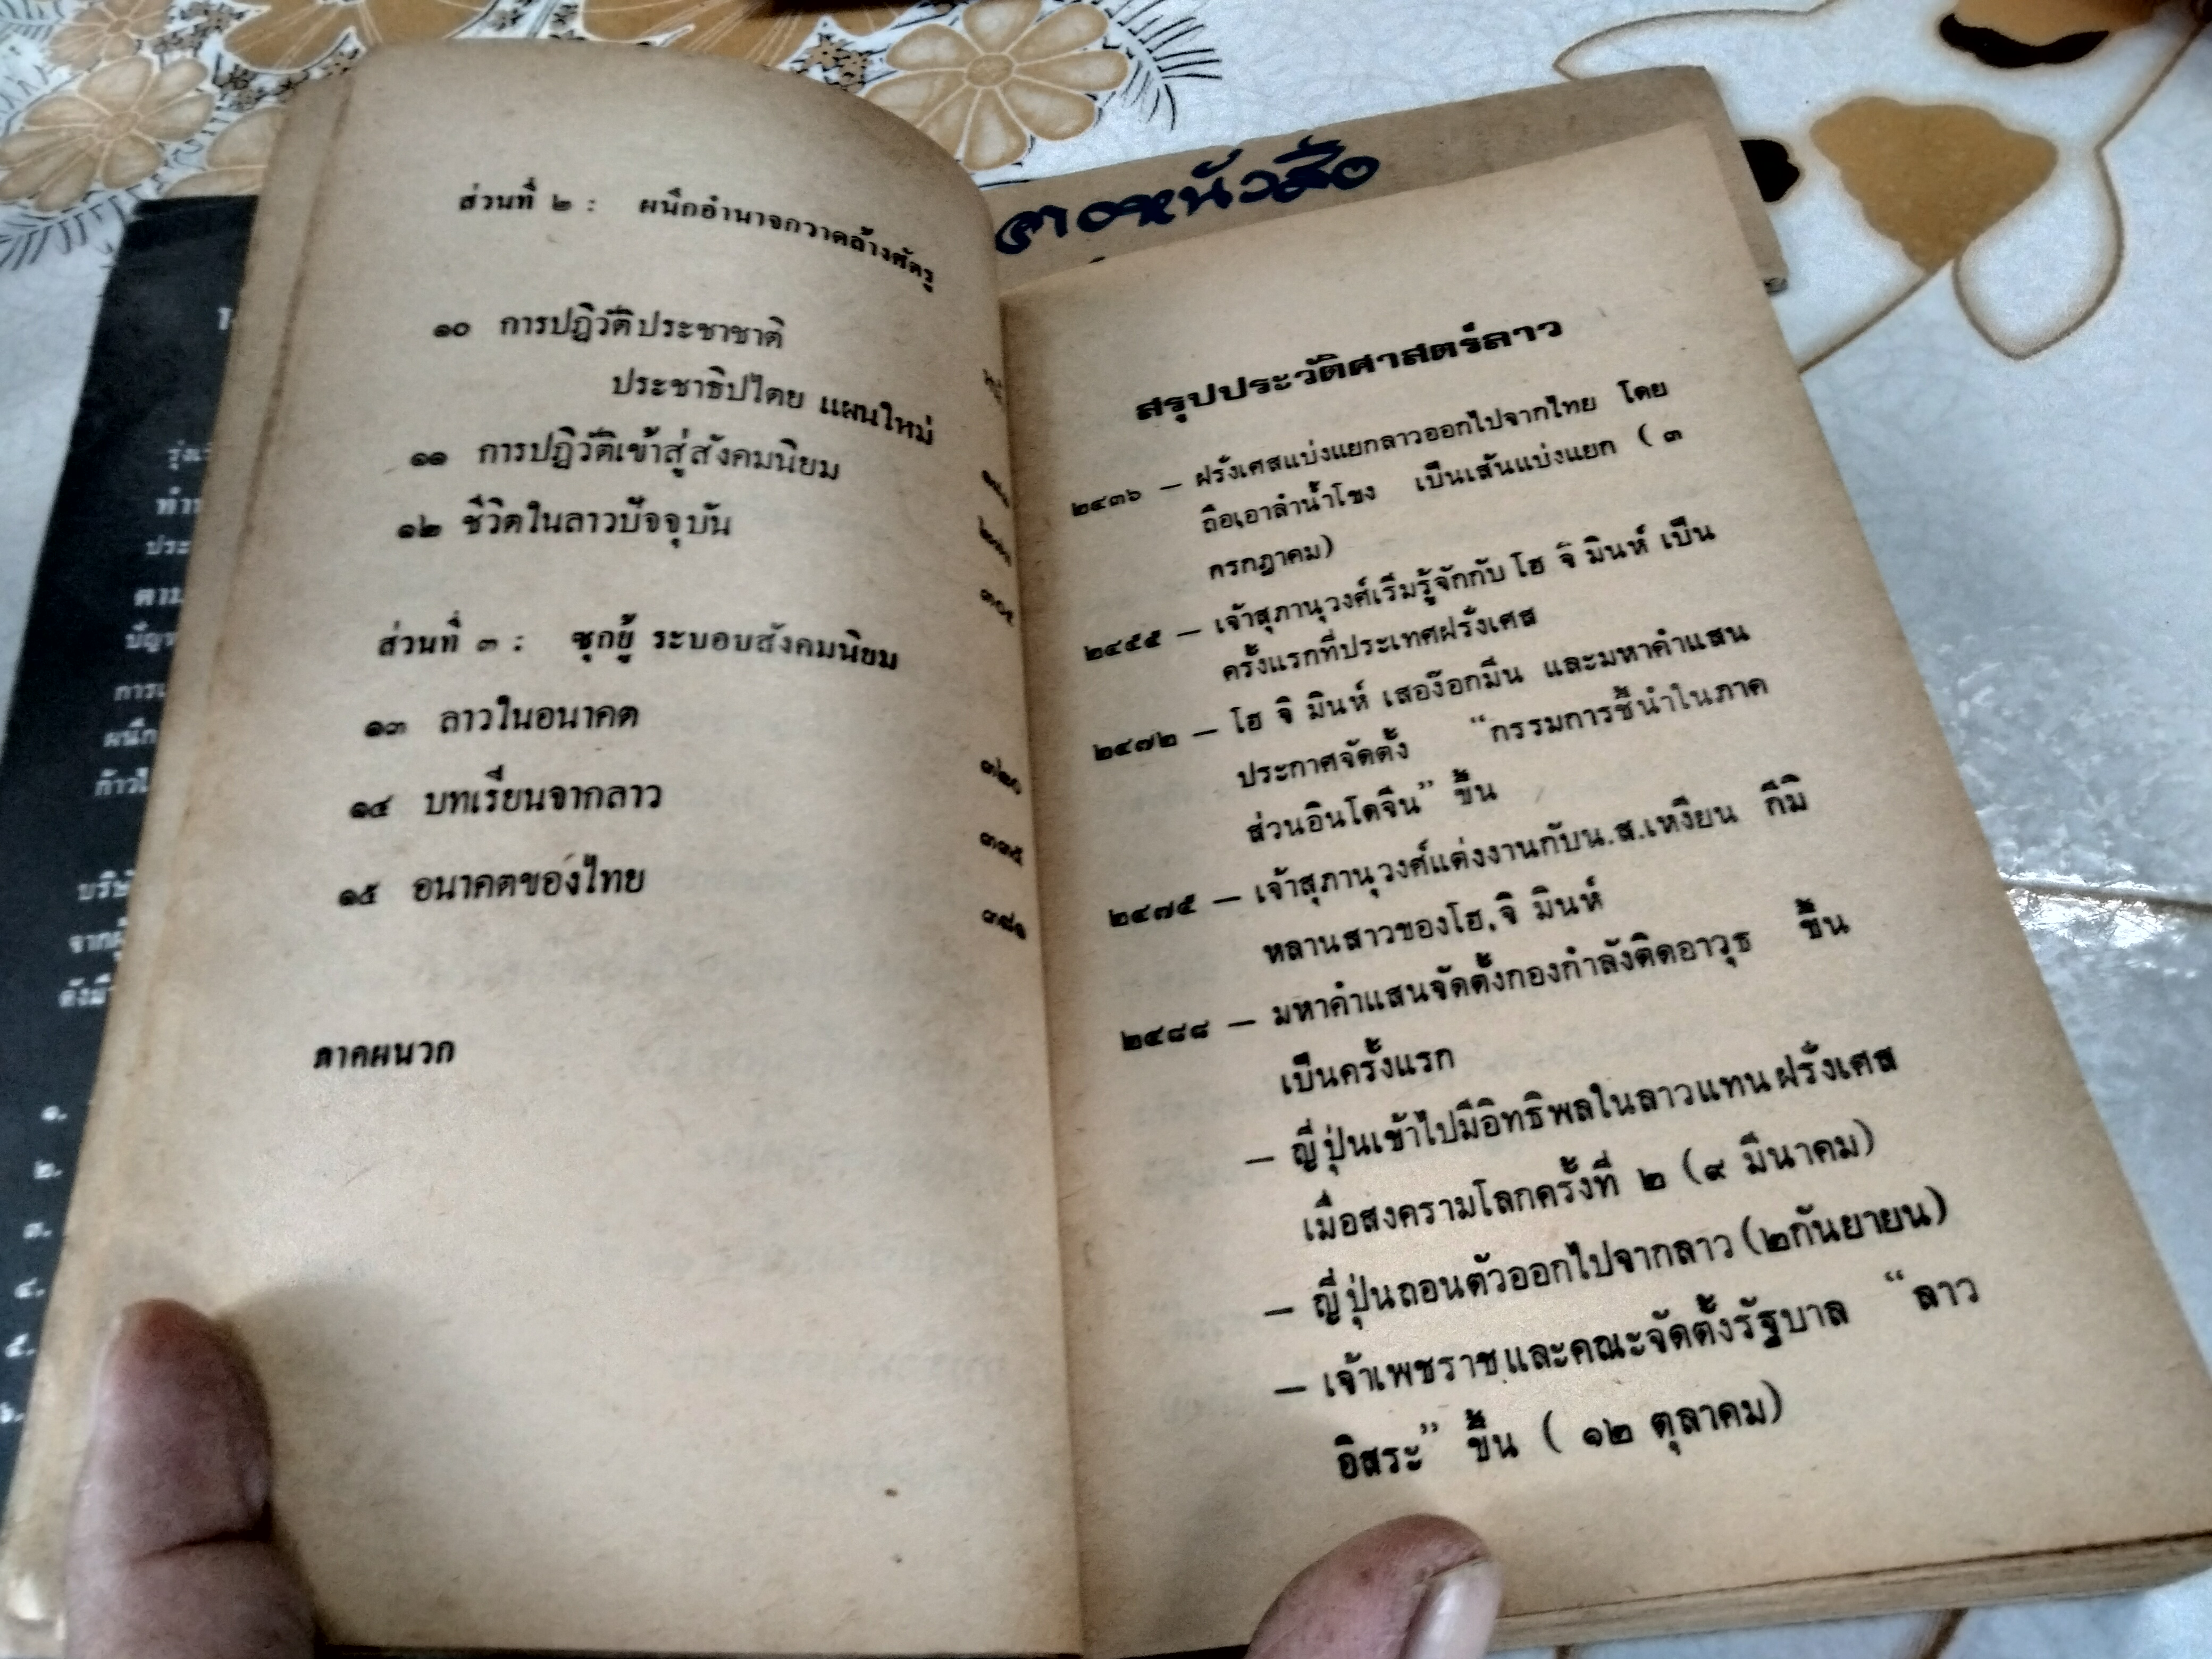 ส่วนที่ ๒ : ผนึกอำนาจกวาดล้างศัตรู
๑๐ การปฏิวัติประชาชาติ
ประชาธิปไตย แผนใหม่
๑๑ การปฏิวัติเข้าสู่สังคมนิยม
๑๒ ชีวิตในลาวปัจจุบัน
ส่วนที่ ๓ : ซุกยู้ ระบอบสังคมนิยม
๑๓ ลาวในอนาคต
๓๒๐
๑๔ บทเรียนจากลาว
๓๓๕
๑๕ อนาคตของไทย
ภาคผนวก
สรุปประวัติศาสตร์ลาว
๒๔๓๖ — ฝรั่งเศสแบ่งแยกลาวออกไปจากไทย โดย
ถือเอาลำน้ำโขง เป็นเส้นแบ่งแยก ( ๓
กรกฎาคม)
๒๔๕๕ — เจ้าสุภานุวงศ์เริ่มรู้จักกับ โฮ จิ มินห์ เป็น
ครั้งแรกที่ประเทศฝรั่งเศส
๒๔๗๒ — โฮ จิ มินห์ เสอง๊อกมีน และมหาคำแสน
ประกาศจัดตั้ง “กรรมการชี้นำในภาค
ส่วนอินโดจีน” ขึ้น
๒๔๗๕ — เจ้าสุภานุวงศ์แต่งงานกับน.ส.เหงียน กีมิ
หลานสาวของโฮ, จิ มินห์
๒๔๘๘ — มหาคำแสนจัดตั้งกองกำลังติดอาวุธ ขึ้น
เป็นครั้งแรก
— ญี่ปุ่นเข้าไปมีอิทธิพลในลาวแทนฝรั่งเศส
เมื่อสงครามโลกครั้งที่ ๒ (๙ มีนาคม)
— ญี่ปุ่นถอนตัวออกไปจากลาว (๒กันยายน)
— เจ้าเพชราชและคณะจัดตั้งรัฐบาล “ลาว
อิสระ” ขึ้น ( ๑๒ ตุลาคม)